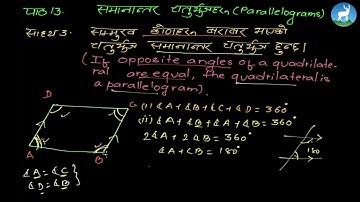 पाठ 13. समानान्तर चतुर्भुजहरू (Parallelograms)
साध्य 3. सम्मुख कोणहरू बराबर भएको
चतुर्भुज समानान्तर चतुर्भुज हुन्छ।
(If opposite angles of a quadrilate-
ral are equal, the quadrilateral is
a parallelogram).
D
C
A
B
∡A=∡C
∡D=∡B
(i) ∡A+∡B+∡C+∡D=360°
(ii) ∡A+∡B+∡A+∡B=360°
2∡A+2∡B=360°
∡A+∡B=180°
180